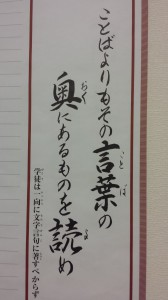 ことばよりもその言葉の
奥にあるものを読め
学徒は一向に文字言句に著すべからず